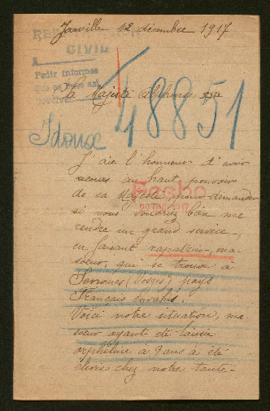 Janville 12 décembre 1917
CIVIL
A
Pedir informes
Sa Majesté Alphonse XIII
48851
J'ai l'honneur d'avoir
recours au haut pouvoir
de sa Majesté, pour demander
si vous voudriez bien me
rendre un grand service
en faisant rapatrier, ma
soeur, qui se trouve à
pays
Français envahis.
Voici notre situation, ma
soeur ayant été laissée
orpheline à 9 ans a été
élevée chez notre tante